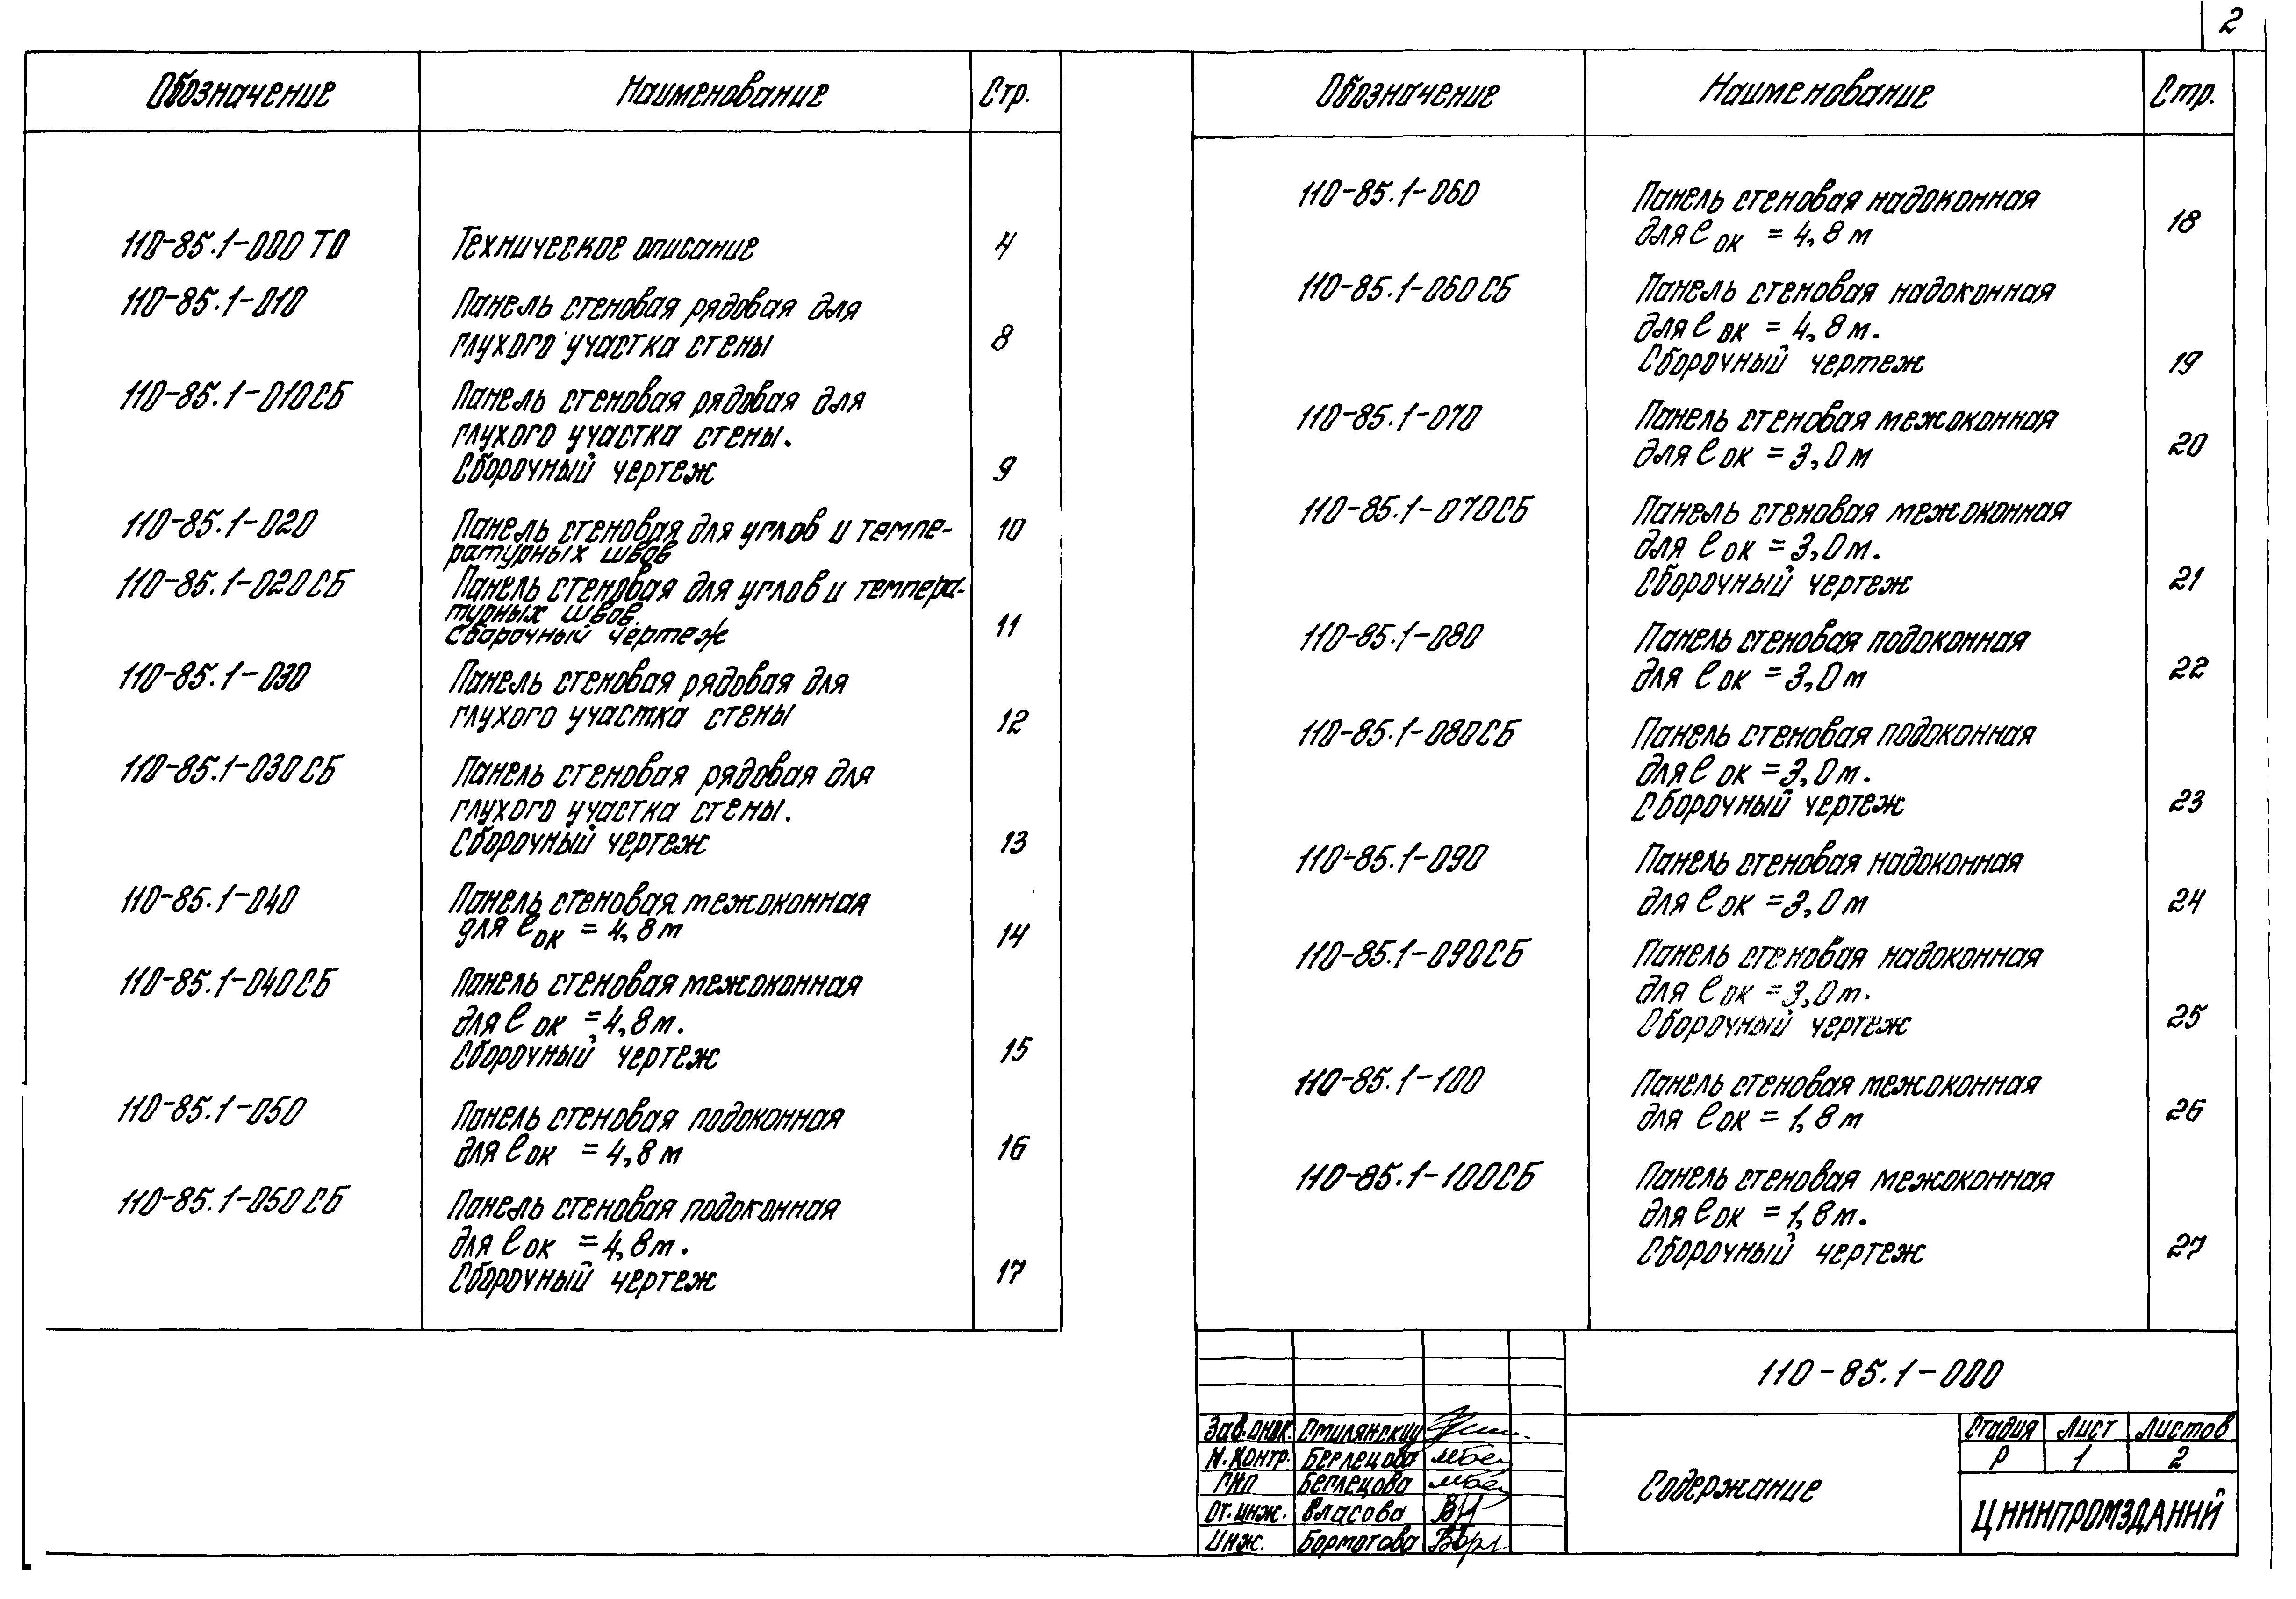 2
Обозначение Наименование Стр.
110-85.1-000 ТО Техническое описание 4
110-85.1-010 Панель стеновая рядовая для
глухого участка стены 8
110-85.1-010СБ Панель стеновая рядовая для
глухого участка стены.
Сборочный чертеж 9
110-85.1-020 Панель стеновая для углов и темпе- 10
ратурных швов
110-85.1-020СБ Панель стеновая для углов и темпера-
турных швов.
Сборочный чертеж 11
110-85.1-030 Панель стеновая рядовая для
глухого участка стены 12
110-85.1-030СБ Панель стеновая рядовая для
глухого участка стены.
Сборочный чертеж 13
110-85.1-040 Панель стеновая межоконная
для ℓок = 4,8м 14
110-85.1-040СБ Панель стеновая межоконная
для ℓок = 4,8м.
Сборочный чертеж 15
110-85.1-050 Панель стеновая подоконная
для ℓок = 4,8м 16
110-85.1-050СБ Панель стеновая подоконная
для ℓок = 4,8м.
Сборочный чертеж 17
Обозначение Наименование Стр.
110-85.1-060 Панель стеновая надоконная
для ℓок = 4,8м 18
110-85.1-060СБ Панель стеновая надоконная
для ℓок = 4,8м.
Сборочный чертеж 19
110-85.1-070 Панель стеновая межоконная
для ℓок = 3,0м 20
110-85.1-070СБ Панель стеновая межоконная
для ℓок = 3,0м.
Сборочный чертеж 21
110-85.1-080 Панель стеновая подоконная
для ℓок = 3,0м 22
110-85.1-080СБ Панель стеновая подоконная
для ℓок = 3,0м.
Сборочный чертеж 23
110-85.1-090 Панель стеновая надоконная
для ℓок = 3,0м 24
110-85.1-090СБ Панель стеновая надоконная
для ℓок = 3,0м.
Сборочный чертеж 25
110-85.1-100 Панель стеновая межоконная
для ℓок = 1,8м 26
110-85.1-100СБ Панель стеновая межоконная
для ℓок = 1,8м.
Сборочный чертеж 27
110-85.1-000
Зав. Смилянский
Н.Контр. Беглецова
ГИП Беглецова
Ст.инж. Власова
Инж. Бормотова
Содержание
Стадия Лист Листов
Р 1 2
ЦНИИПРОМЗДАНИЙ